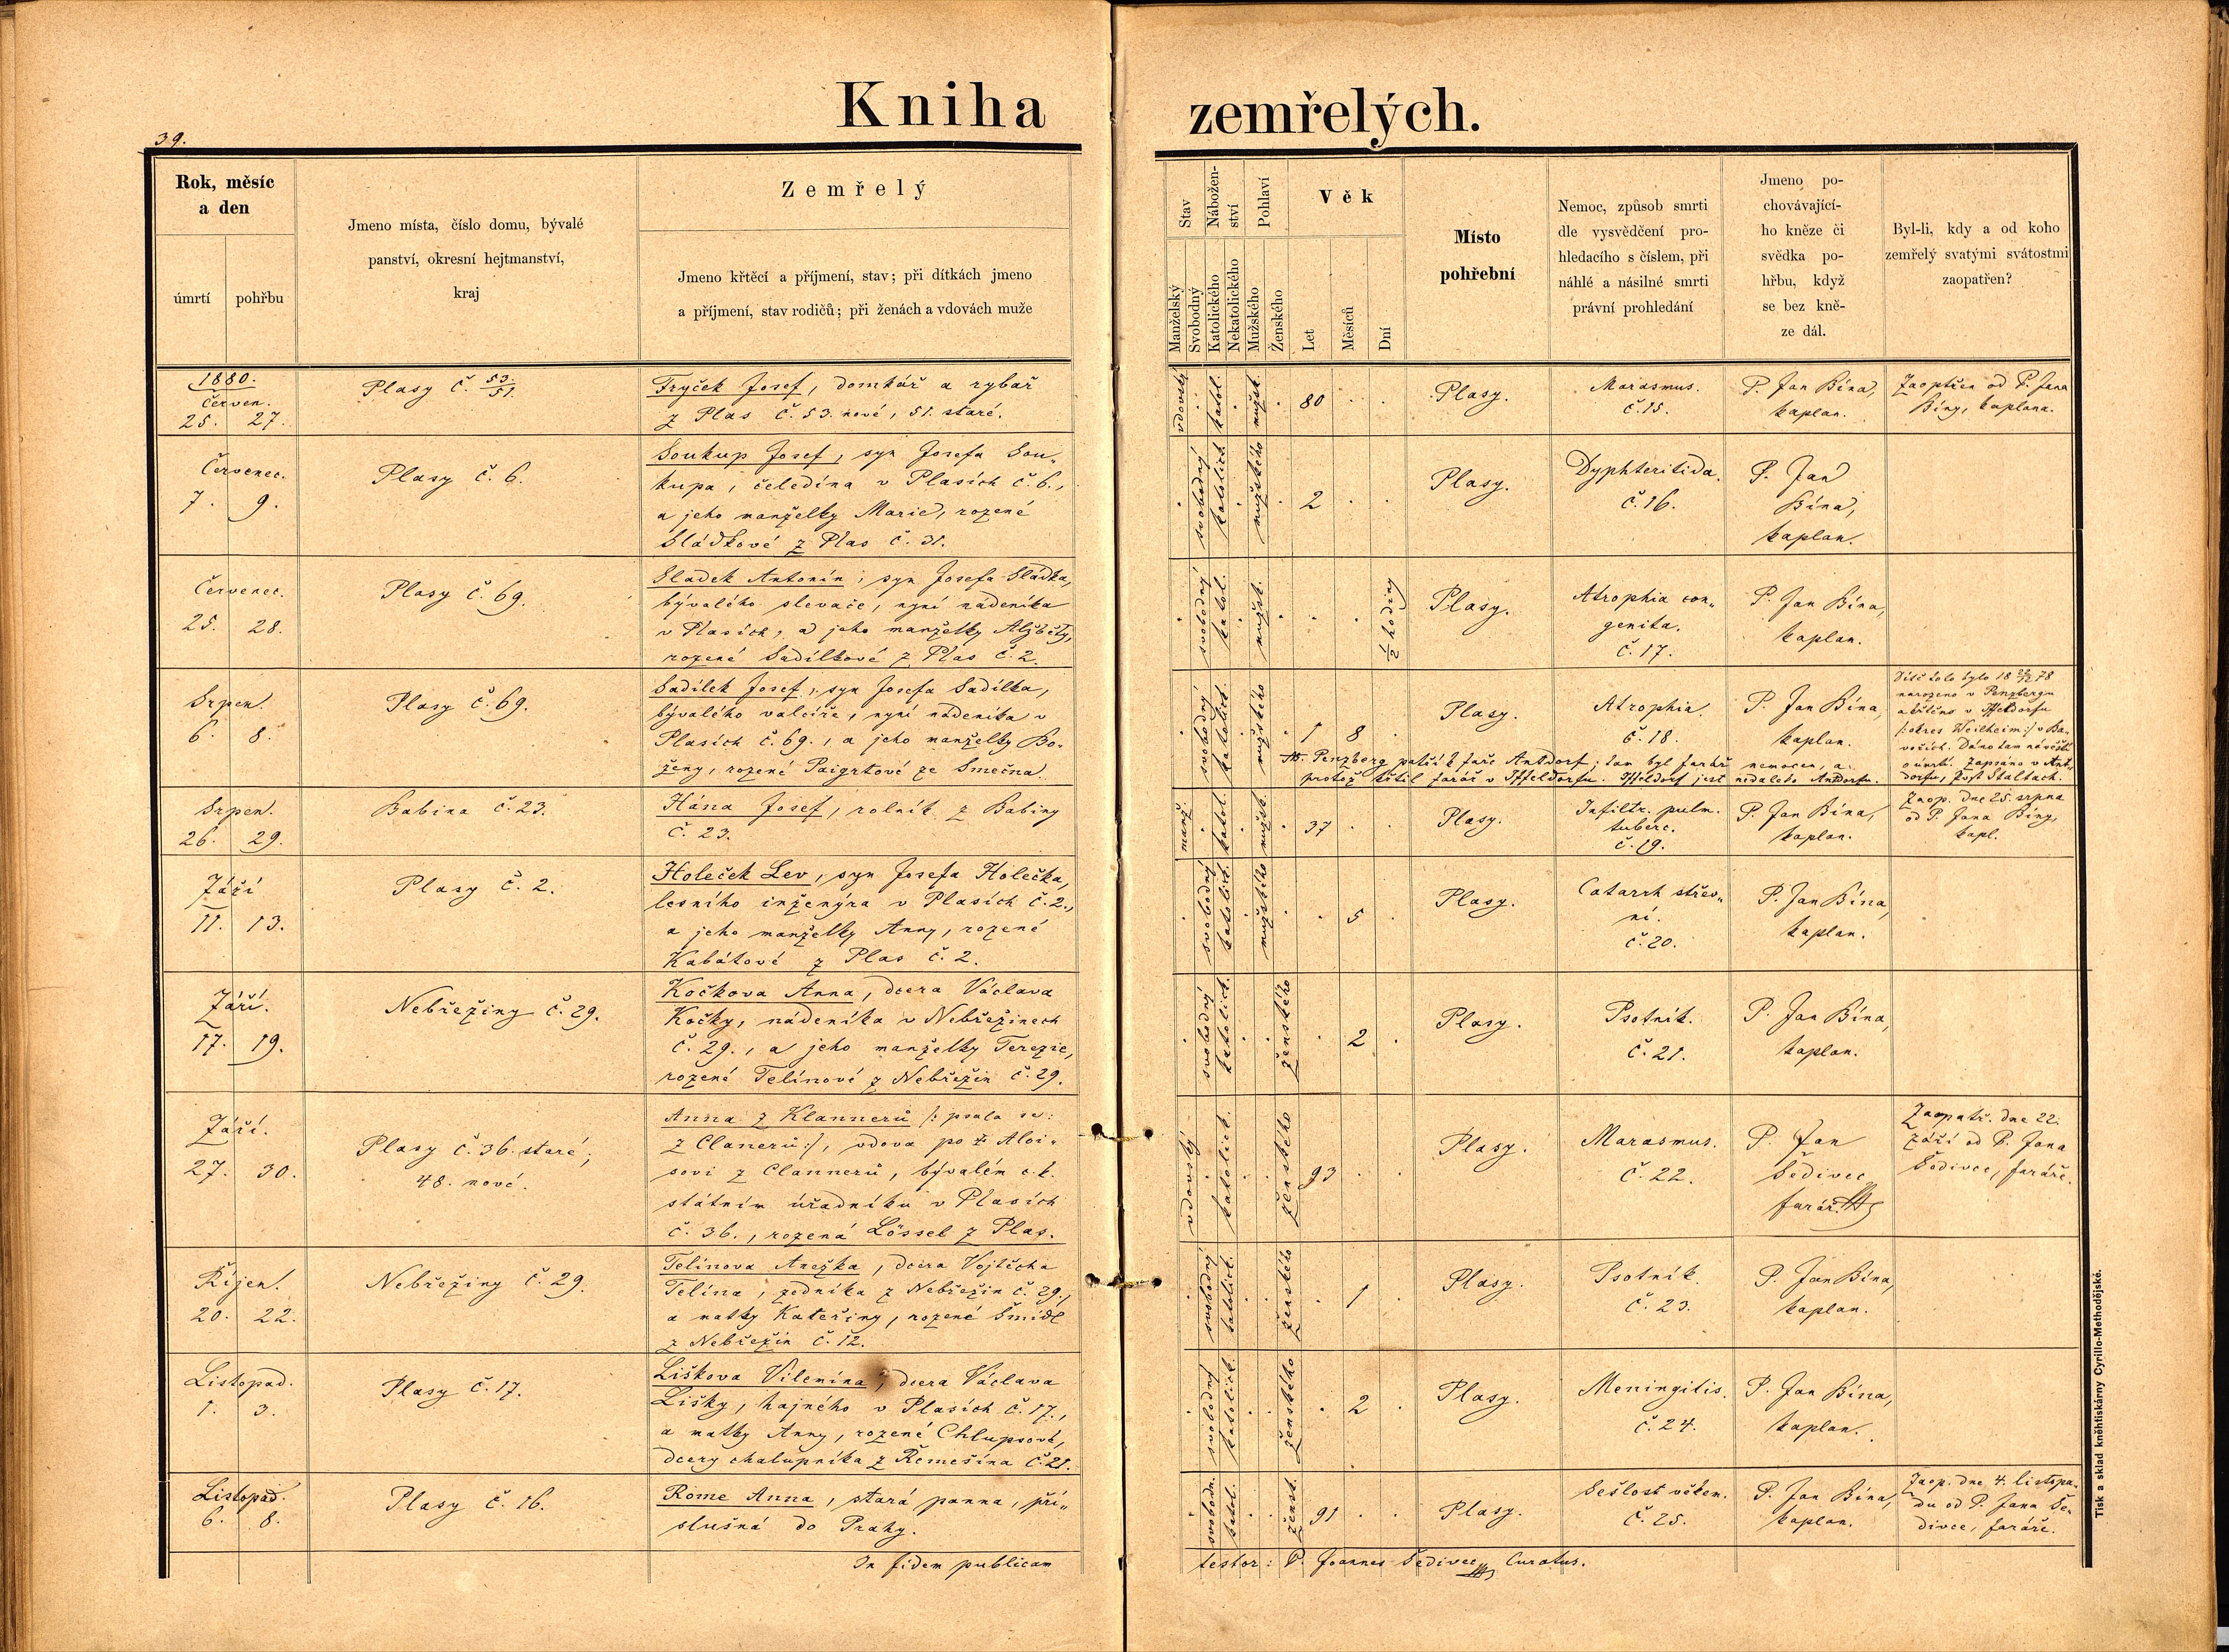 Kniha zemřelých.
39.
Rok, měsíc
a den
úmrtí pohřbu
Jmeno místa, číslo domu, bývalé
panství, okresní hejtmanství,
kraj
Zemřelý
Jmeno křtěcí a příjmení, stav; při dítkách jmeno
a příjmení, stav rodičů; při ženách a vdovách muže
Stav
Manželský
Svobodný
Nábožen-
ství
Katolického
Nekatolického
Pohlaví
Mužského
Ženského
Věk
Let
Měsíců
Dní
Místo
pohřební
Nemoc, způsob smrti
dle vysvědčení pro-
hledacího s číslem, při
náhlé a násilné smrti
právní prohledání
Jmeno po-
chovávající-
ho kněze či
svědka po-
hřbu, když
se bez kně-
ze dál.
Byl-li, kdy a od koho
zemřelý svatými svátostmi
zaopatřen?
1880.
Červen.
25. 27.
Plasy č. 53/51.
Tryček Josef, domkář a rybář
z Plas č. 53. nové, 51. staré.
vdovský
katol.
mužsk.
80
Plasy.
Marasmus.
č. 15.
P. Jan Bína,
kaplan.
Zaoptřen od P. Jana
Bíny, kaplana.
Červenec.
7. 9.
Plasy č. 6.
Soukup Josef, syn Josefa Sou„
kupa, čeledína v Plasích č. 6.,
a jeho manželky Marie, rozené
Sládkové z Plas č. 31.
svobodný
katolick
mužského
2
Plasy.
Dyphteritida.
č. 16.
P. Jan
Bína,
kaplan.
Červenec.
25. 28.
Plasy č. 69.
Sladek Antonín, syn Josefa Sládka,
bývalého slevače, nyní nádeníka
v Plasích, a jeho manželky Alžběty,
rozené Sadílkové z Plas č. 2.
svobodný
katol.
mužsk.
1/2 hodiny
Plasy.
Atrophia con„
genita.
č. 17.
P. Jan Bína,
kaplan.
Srpen.
6. 8.
Plasy č. 69.
Sadílek Josef, syn Josefa Sadílka,
bývalého valcíře, nyní nádeníka v
Plasích č. 69., a jeho manželky Bo-
ženy, rozené Paigrtové ze Smečna.
svobodný
katolick.
mužského
1 8
Plasy.
Atrophia.
č. 18.
P. Jan Bína,
kaplan.
Dítě toto bylo 18 78
narozeno v Penzbergu
a křtěno v Iffeldorfu
/: okres Weilheim :/ v Ba-
vořích. Dáno tam návěstí
o úmrtí. Zapsáno v Ant-
dorfu, Post Staltach.
NB. Penzberg patří k faře Antdorf, tam byl farář nemocen, a
protož křtil farář v Iffeldorfu. Iffeldorf jest nedaleko Antdorfu.
Srpen.
26. 29.
Babina č. 23.
Hána Josef, rolník z Babiny
č. 23.
manž.
katol.
mužsk.
37
Plasy.
Infiltr. pulm.
tuberc.
č. 19.
P. Jan Bína,
kaplan.
Zaop. dne 25. srpna
od P. Jana Bíny,
kapl.
Září
11. 13.
Plasy č. 2.
Holeček Lev, syn Josefa Holečka,
lesního inženýra v Plasích č. 2.,
a jeho manželky Anny, rozené
Kabátové z Plas č. 2.
svobodný
katolick.
mužského
5
Plasy.
Catarrh střev„
ní.
č. 20.
P. Jan Bína,
kaplan.
Září.
17. 19.
Nebřeziny č. 29.
Kočkova Anna, dcera Václava
Kočky, nádeníka v Nebřezinech
č. 29., a jeho manželky Terezie,
rozené Telínové z Nebřezin č. 29.
svobodný
katolick.
ženského
2
Plasy.
Psotník.
č. 21.
P. Jan Bína,
kaplan.
Září.
27. 30.
Plasy č. 36. staré;
48. nové.
Anna z Klannerů /: psala se:
z Clanerů :/, vdova po Aloi„
sovi z Clannerů, bývalém c. k.
státním úředníku v Plasích
č. 36., rozená Lössel z Plas.
vdovský
katolick.
ženského
93
Plasy.
Marasmus.
č. 22.
P. Jan
Šedivec
farář.
Zaopatř. dne 22.
září od P. Jana
Šedivce, faráře.
Říjen.
20. 22.
Nebřeziny č. 29.
Telínova Anežka, dcera Vojtěcha
Telína, zedníka z Nebřezin č. 29.,
a matky Kateřiny, rozené Šmidl
z Nebřezin č. 12.
svobodný
katolick.
ženského
1
Plasy.
Psotník.
č. 23.
P. Jan Bína,
kaplan.
Listopad.
1. 3.
Plasy č. 17.
Liškova Vilemína, dcera Václava
Lišky, hajného v Plasích č. 17.,
a matky Anny, rozené Chlupsové,
dcery chalupníka z Řemešína č. 21.
svobodný
katolick.
ženského
2
Plasy.
Meningitis.
č. 24.
P. Jan Bína,
kaplan.
Listopad.
6. 8.
Plasy č. 16.
Rome Anna, stará panna, pří„
slušná do Prahy.
svobodn.
katol.
žensk.
91
Plasy.
Sešlost věkem.
č. 25.
P. Jan Bína,
kaplan.
Zaop. dne 4. listopa-
du od P. Jana Še-
divce, faráře.
In fidem publicam
testor: P. Joannes Šedivec Curatus.
Tisk a sklad kněhtiskárny Cyrillo-Methodějské.